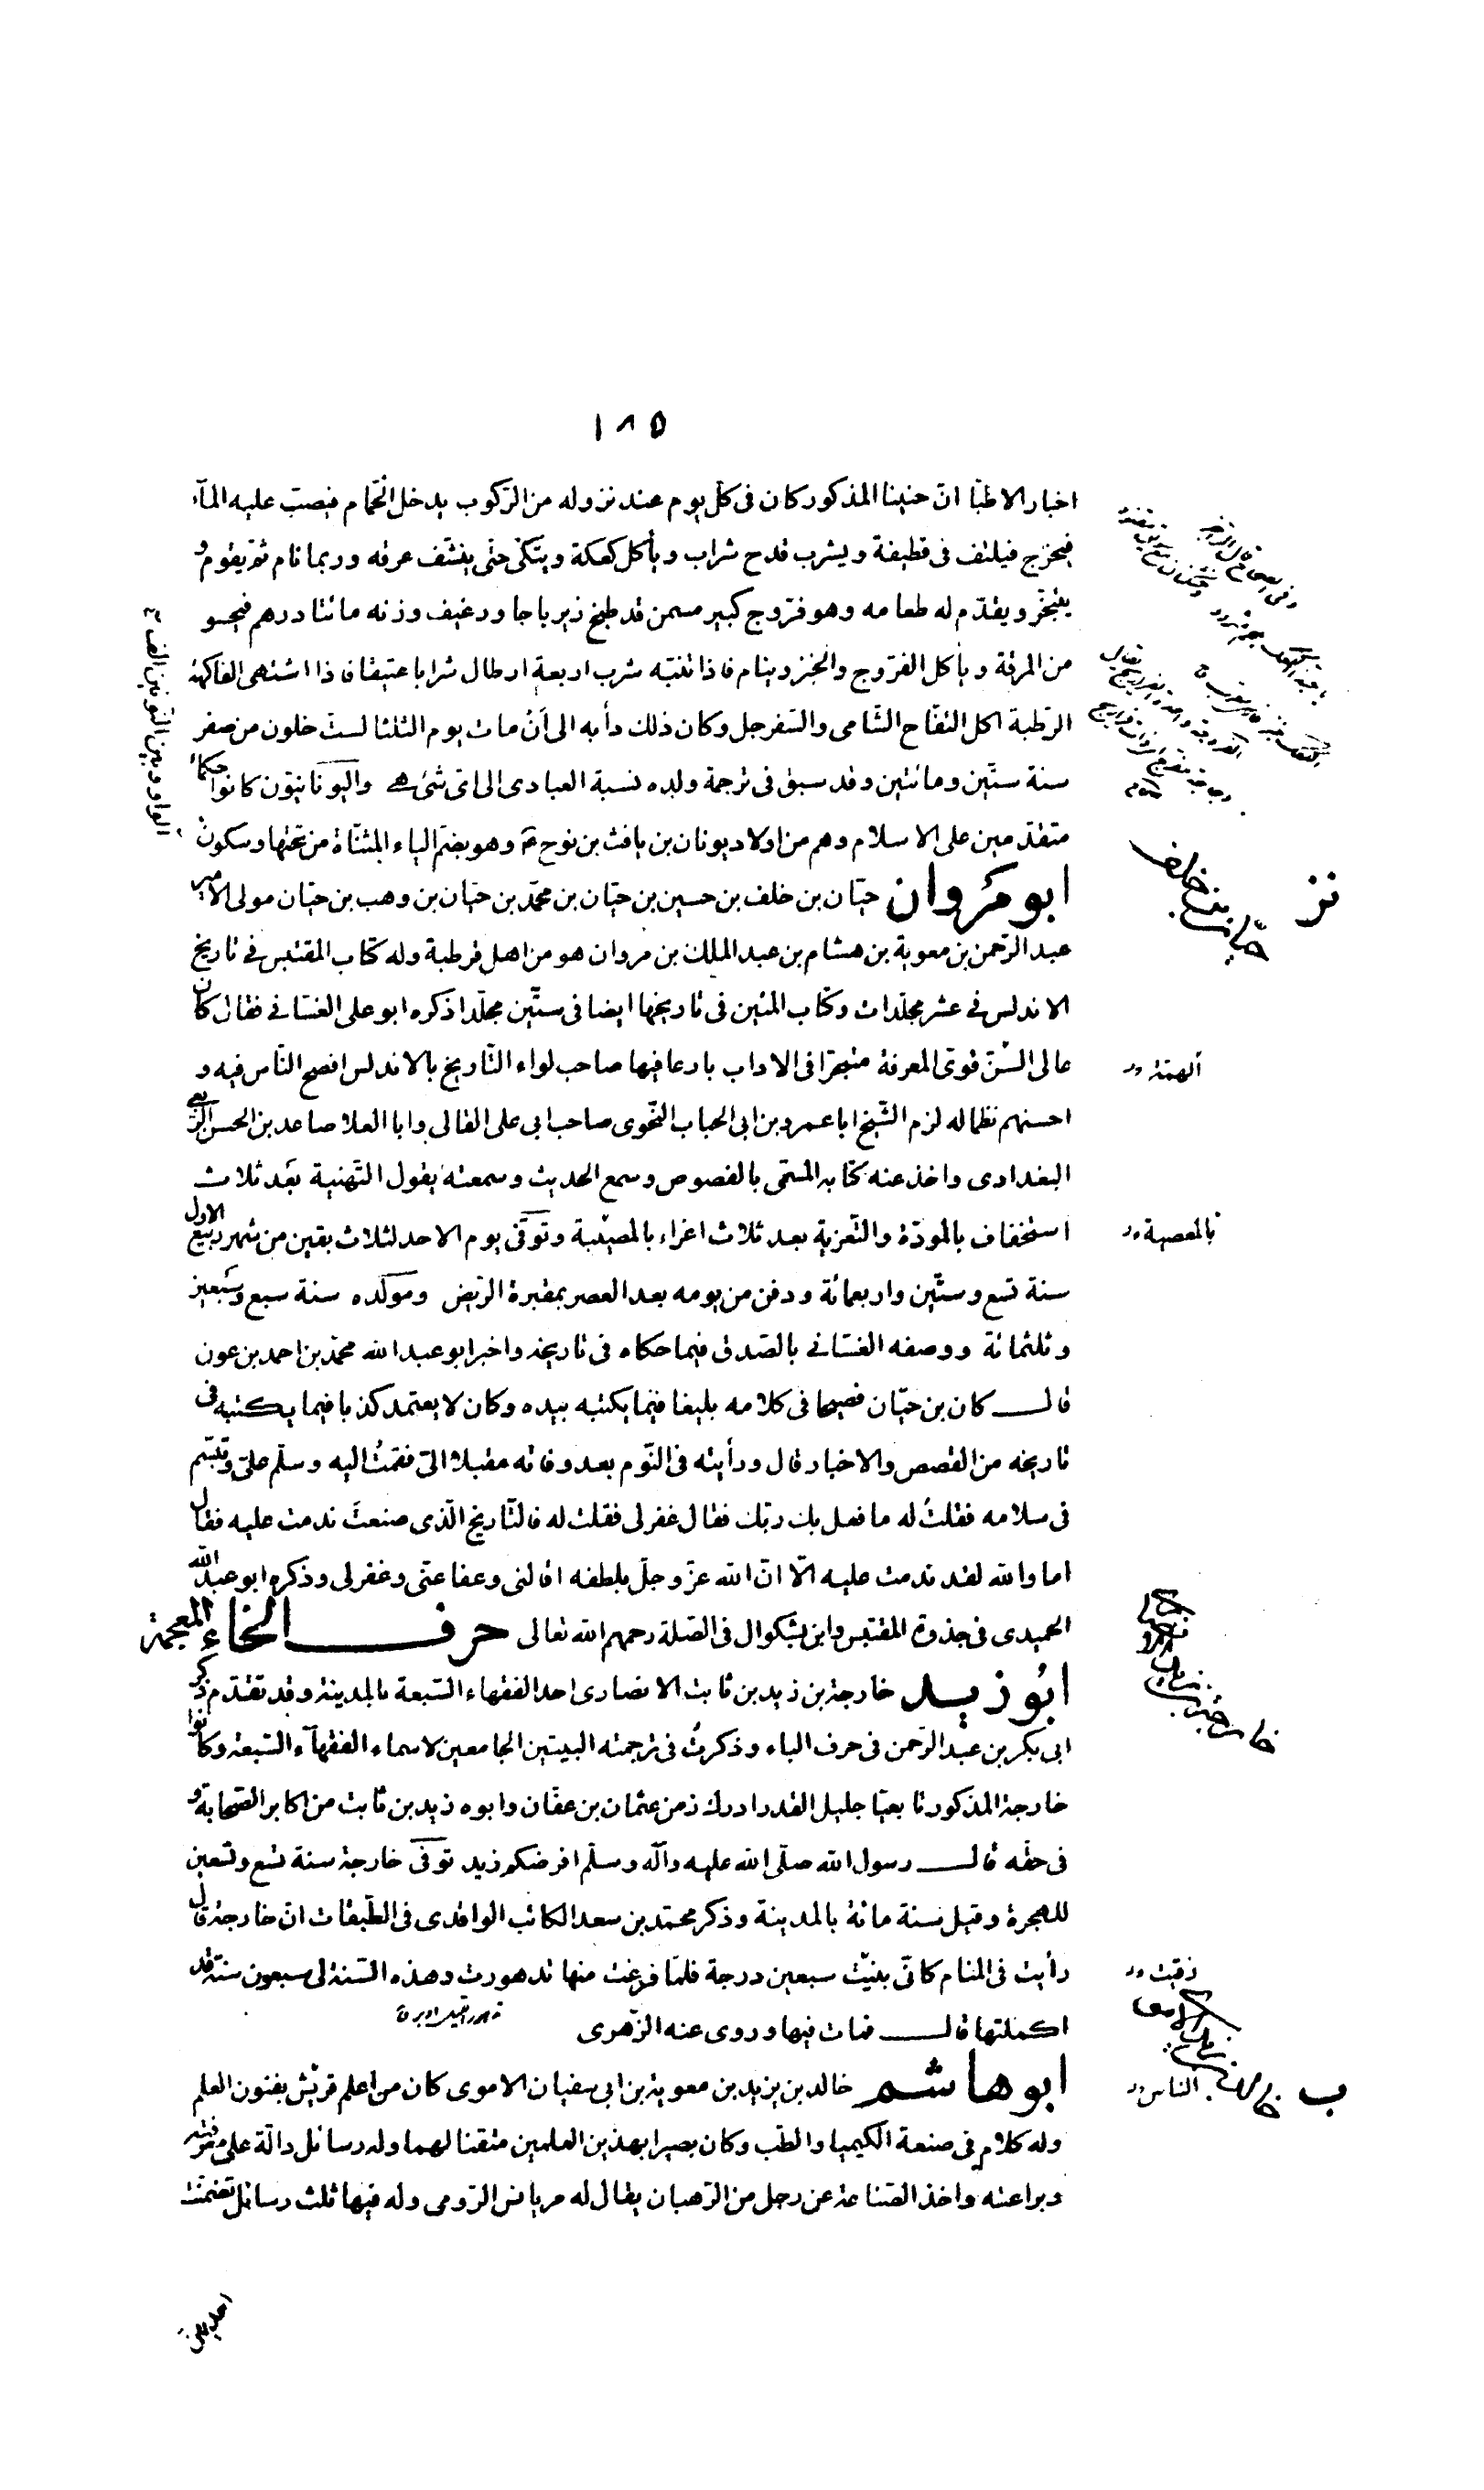 ١٨٥
اخبار الاطبّا انّ حنينا المذكور كان فى كلّ يوم عند نزوله من الرّكوب يدخل الحّمام فيصبّ عليه المآء
فيخرج فيلتف فى قطيفة ويشرب قدح شراب ويأكل كعكة ويتّكئ حتى ينشّف عرقه وربما نام ثمّ يقوم و
يتبخّر ويقدّم له طعامه وهو فرّوج كبير مسمن قد طبخ زيرباجا ورغيف وزنه مائتا درهم فيحسو
من المرقة ويأكل الفرّوج والخبز وينام فاذا تنبّه شرب اربعة ارطال شرابا عتيقا فاذا اشتهى الفاكهة
الرّطبة اكل التفّاح الشّامى والسّفرجل وكان ذلك دأبه الى اَنْ مات يوم الثلثا لستّ خلون من صفر
سنة ستّين ومائتين وقد سبق فى ترجمة ولده نسبة العبادى الى اىّ شئ هے واليونانيّون كانوا حكمآء
متقدّمين على الاسلام وهم من اولاد يونان بن يافث بن نوح ع وهو بضمّ الياء المثنّاة من تحتها وسكون
الواو وبين النّونين الف
ابو مَروان حيّان بن خلف بن حسين بن حيّان بن محمّد بن حيّان بن وهب بن حيّان مولى الامير
حيّان بن خلف
عبد الرّحمن بن معوية بن هشام بن عبد الملك بن مروان هو من اهل قرطبة وله كتاب المقتبس فے تاريخ
الاندلس فے عشر مجلّدات وكتاب المتين فى تاريخها ايضا فى ستّين مجلّدا ذكره ابو على الغسّانے فقال كان
عالى السّنّ قوىّ المعرفة متبحّرا فى الاداب بارعا فيها صاحب لواء التّاريخ بالاندلس افصح النّاس فيه و
الهمّة
احسنهم نظما له لزم الشّيخ ابا عمرو بن ابى الحباب النّحوى صاحب ابى على القالى وابا العلا صاعد بن الحسن الربعے
البغدادى واخذ عنه كتابه المسمّى بالفصوص وسمع الحديث وسمعته يقول التّهنية بعد ثلاث
استخفاف بالمودّة والتّعزية بعد ثلاث اغراء بالمصيبة وتوفّى يوم الاحد لثلاث بقين من شهر ربيع الاول
بالمعصية
سنة تسع وستّين واربعمائة ودفن من يومه بعد العصر بمقبرة الرّبض ومولده سنة سبع وسَبعين
وثلثمائة ووصفه الغسّانے بالصّدق فيما حكاه فى تاريخه واخبر ابو عبد الله محمّد بن احمد بن عون
قالــ كان بن حيّان فصيحا فى كلامه بليغا فيما يكتبه بيده وكان لا يعتمد كذبا فيما يكتبه فى
تاريخه من القصص والاخبار قال ورأيته فى النّوم بعد وفاته مقبلا الىّ فقمتُ اليه وسلّم علىّ وتبسّم
فى سلامه فقلتُ له ما فعل بك ربّك فقال غفر لى فقلت له فالتّاريخ الّذى صنعتَ ندمت عليه فقال
اما والله لقد ندمت عليه الّا انّ الله عزّ وجلّ بلطفه اقالنى وعفا عنّى وغفر لى وذكره ابو عبد الله
الحميدى فى جذوة المقتبس وابن بشكوال فى الصّلة رحمهم الله تعالى حرفــ الخاء المعجمة
ابُو زيد خارجة بن زيد بن ثابت الانصارى احد الفقهاء السّبعة بالمدينة وقد تقدّم ذكر
ابى بكر بن عبد الرّحمن فى حرف الباء وذكرتُ فى ترجمته البيتين الجامعين لاسماء الفقهآء السّبعة وكانوا
خارجة المذكور تابعيّا جليل القدر ادرك زمن عثمان بن عفّان وابوه زيد بن ثابت من اكابر الصّحابة و
فى حقّه قالــ رسول الله صلّى الله عليه وآله وسلّم افرضكم زيد توفّى خارجة سنة تسع وتسعين
للهجرة وقيل سنة مائة بالمدينة وذكر محمّد بن سعد الكاتب الواقدى فى الطّبقات انّ خارجة قال
رأيت فى المنام كانّى بنيت سبعين درجة فلمّا فرغت منها تدهورت وهذه السّنة لى سبعون سنة قد
اكملتها قالــ فمات فيها وروى عنه الزّهرى
ابو هاشم خالد بن يزيد بن معوية بن ابى سفيان الاموى كان من اعلم قريش بفنون العلم
ب
الناس
وله كلام فى صنعة الكيميا والطّب وكان بصيرا بهذين العلمين متقنا لهما وله رسائل دالّة على معرفته
وبراعته واخذ الصّناعة عن رجل من الرّهبان يقال له مريانس الرّومى وله فيها ثلث رسائل تضمّنت
احديهنّ